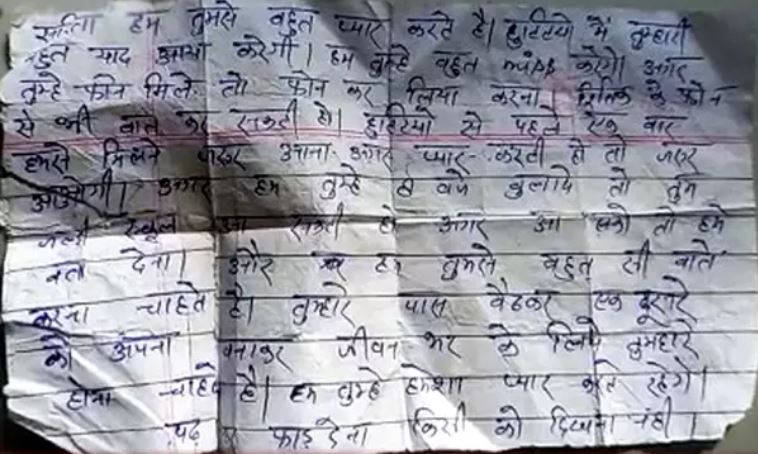 सरिता हम तुमसे बहुत प्यार करते है। छुटिटयो में तुम्हारी
बहुत याद आया करेगी। हम तुम्हे बहुत miss करेगे। अगर
तुम्हे फोन मिले तो फोन कर लिया करना। के फोन
से भी बात कर सकती हो। छुटिटयो से पहले एक बार
हमसे मिलने जरुर आना अगर प्यार करती हो तो जरुर
आओगी। अगर हम तुम्हे बजे बुलाये तो तुम
जल्दी स्कूल आ सकती हो अगर आ सको तो हमे
बता देना। और हम तुमसे बहुत सी बाते
करना चाहते है। तुम्हारे पास बैठकर एक दूसरे
को अपना बनाकर जीवन भर के लिये तुमहारे
होना चाहते है। हम तुम्हे हमेशा प्यार करते रहेगे।
पढ़ फाड़ देना किसी को दिखाना नंही।